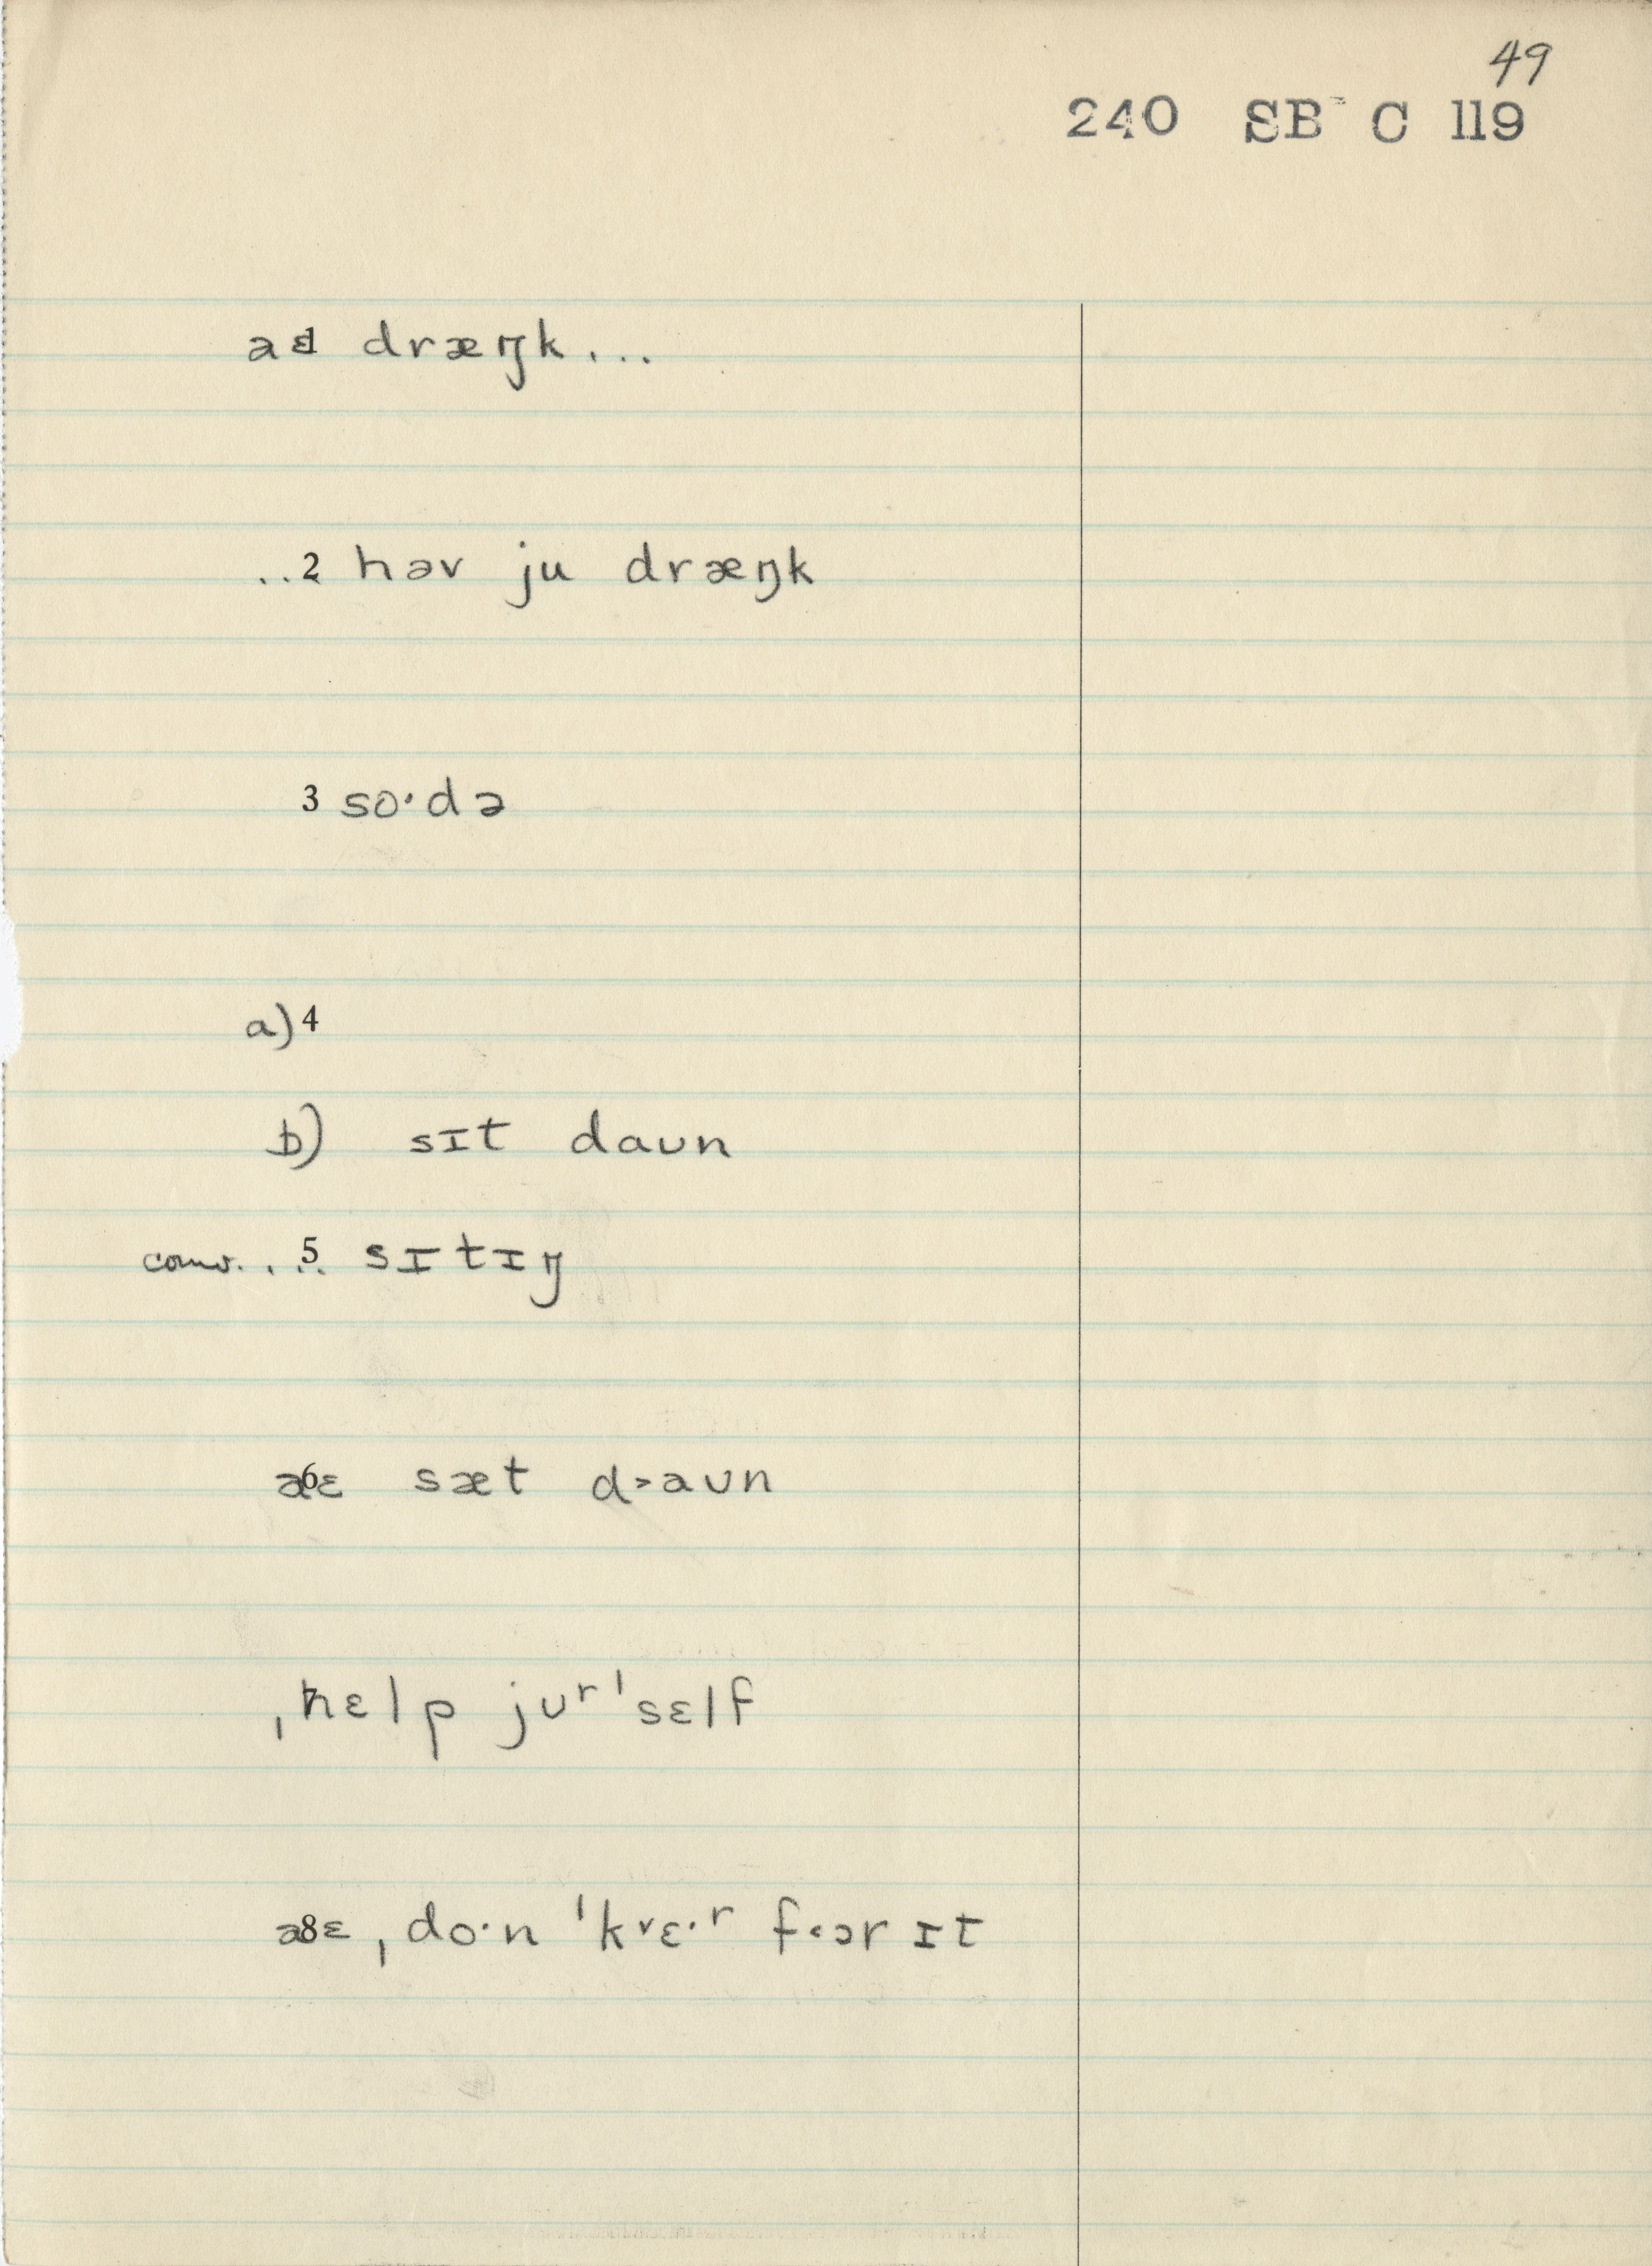 49
240 SB C 119
aɛ 1 dræŋk...
..2 həv ju dræŋk
3 so·də
a) 4
b) sɪt daʊn
conv... 5 sɪtɪŋ
aɛ 6 sæt d>aʊn
7 ˌhɛlp jʊʳˈsɛlf
aɛ 8 ˌdo·n ˈkᵛɛ·ʳ f<ɔr ɪt